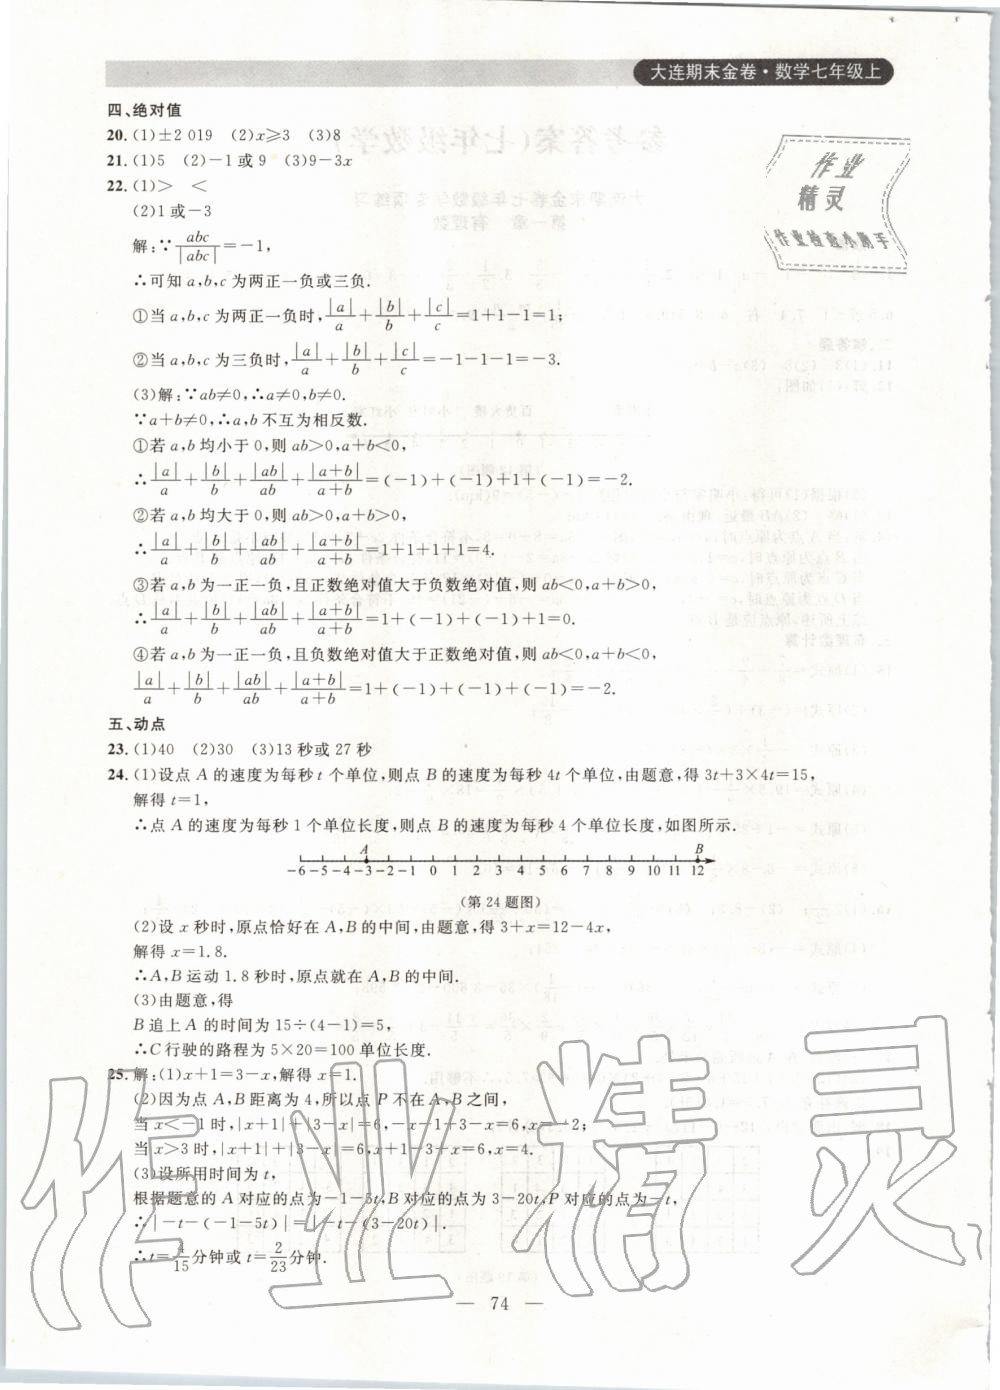 大连期末金卷·数学七年级上
四、绝对值
20.(1)±2 019 (2)x≥3 (3)8
21.(1)5 (2)-1或9 (3)9-3x
22.(1)> <
(2)1或-3
解:∵abc/|abc|=-1,
∴可知a,b,c为两正一负或三负.
①当a,b,c为两正一负时,|a|/a+|b|/b+|c|/c=1+1-1=1;
②当a,b,c为三负时,|a|/a+|b|/b+|c|/c=-1-1-1=-3.
(3)解:∵ab≠0,∴a≠0,b≠0.
∵a+b≠0,∴a,b不互为相反数.
①若a,b均小于0,则ab>0,a+b<0,
∴|a|/a+|b|/b+|ab|/ab+|a+b|/a+b=(-1)+(-1)+1+(-1)=-2.
②若a,b均大于0,则ab>0,a+b>0,
∴|a|/a+|b|/b+|ab|/ab+|a+b|/a+b=1+1+1+1=4.
③若a,b为一正一负,且正数绝对值大于负数绝对值,则ab<0,a+b>0,
∴|a|/a+|b|/b+|ab|/ab+|a+b|/a+b=1+(-1)+(-1)+1=0.
④若a,b为一正一负,且负数绝对值大于正数绝对值,则ab<0,a+b<0,
|a|/a+|b|/b+|ab|/ab+|a+b|/a+b=1+(-1)+(-1)+(-1)=-2.
五、动点
23.(1)40 (2)30 (3)13秒或27秒
24.(1)设点A的速度为每秒t个单位,则点B的速度为每秒4t个单位,由题意,得3t+3×4t=15,
解得t=1,
∴点A的速度为每秒1个单位长度,则点B的速度为每秒4个单位长度,如图所示.
A B
-6 -5 -4 -3 -2 -1 0 1 2 3 4 5 6 7 8 9 10 11 12
(第24题图)
(2)设x秒时,原点恰好在A,B的中间,由题意,得3+x=12-4x,
解得x=1.8.
∴A,B运动1.8秒时,原点就在A,B的中间.
(3)由题意,得
B追上A的时间为15÷(4-1)=5,
∴C行驶的路程为5×20=100单位长度.
25.解:(1)x+1=3-x,解得x=1.
(2)因为点A,B距离为4,所以点P不在A,B之间,
当x<-1时,|x+1|+|3-x|=6,-x-1+3-x=6,x=-2;
当x>3时,|x+1|+|3-x|=6,x+1-3+x=6,x=4.
(3)设所用时间为t,
根据题意的A对应的点为-1-5t,B对应的点为3-20t,P对应的点为-t,
∴|-t-(-1-5t)|=|-t-(3-20t)|.
∴t=4/15分钟或t=2/23分钟.
— 74 —
作业
精灵
作业检查小助手
作业精灵